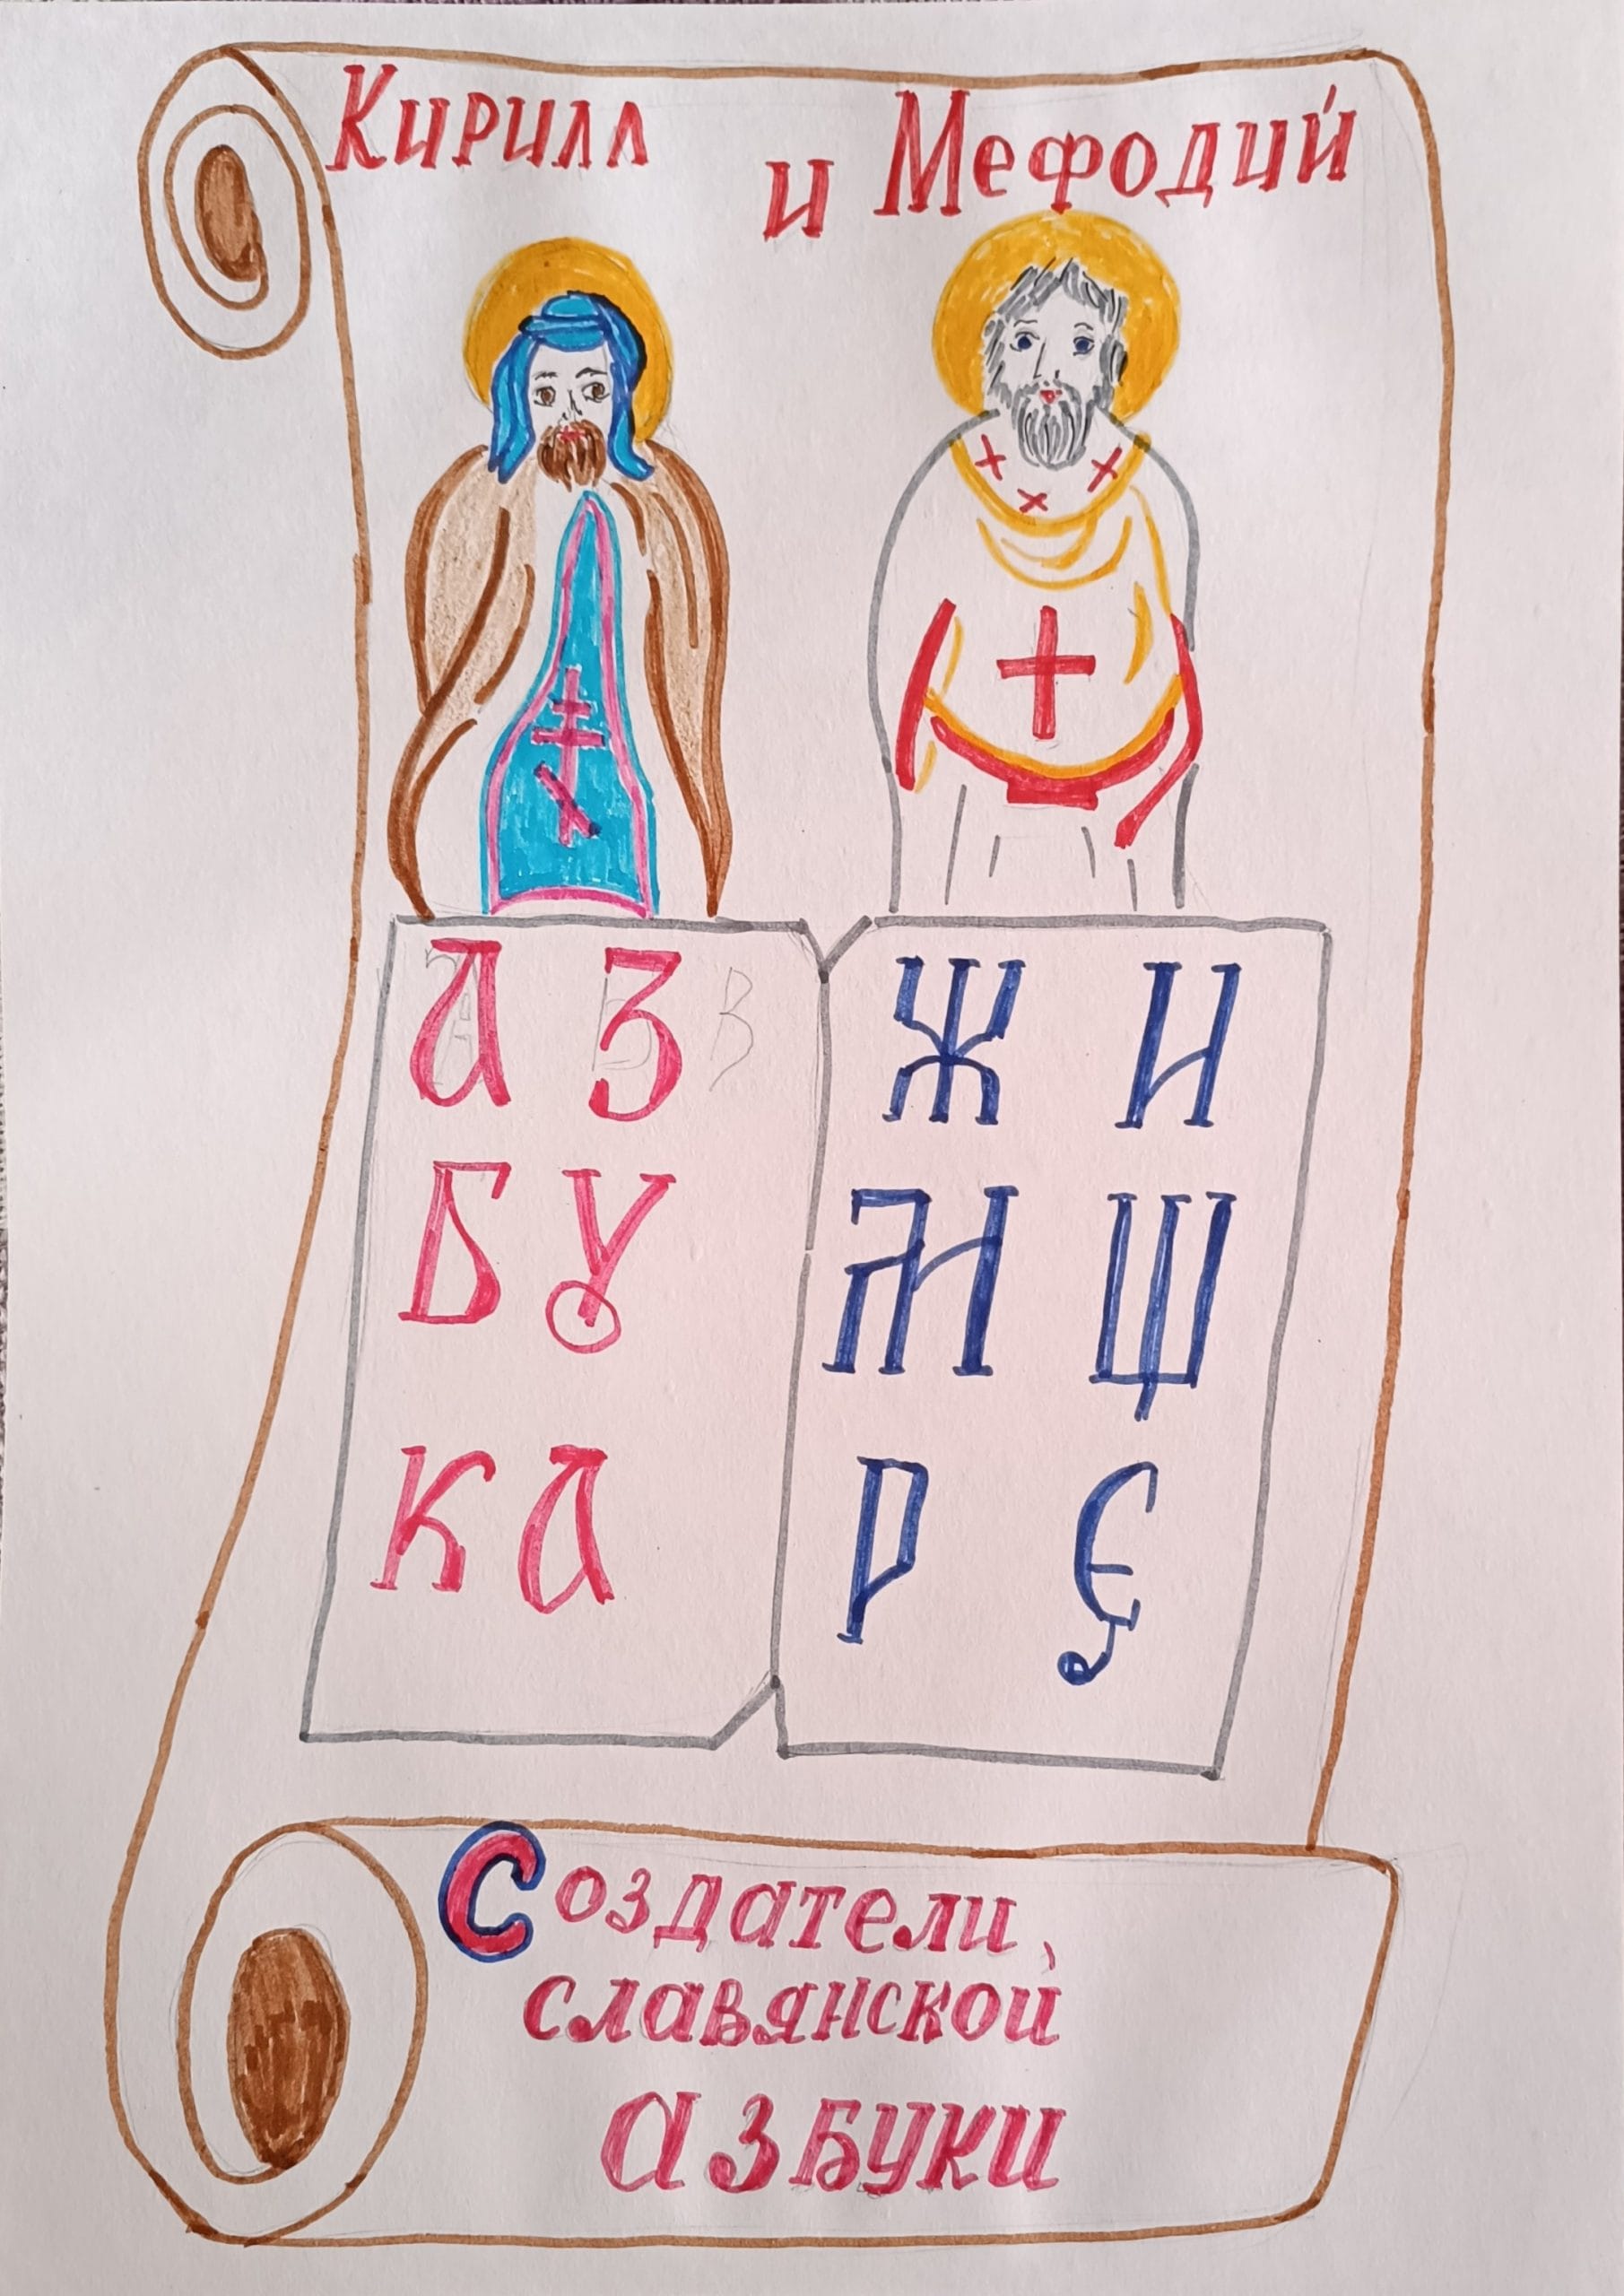 Кирилл и Мефодий
А З
Б У
К А
Ж И
Щ
Р Є
Создатели
славянской
азбуки